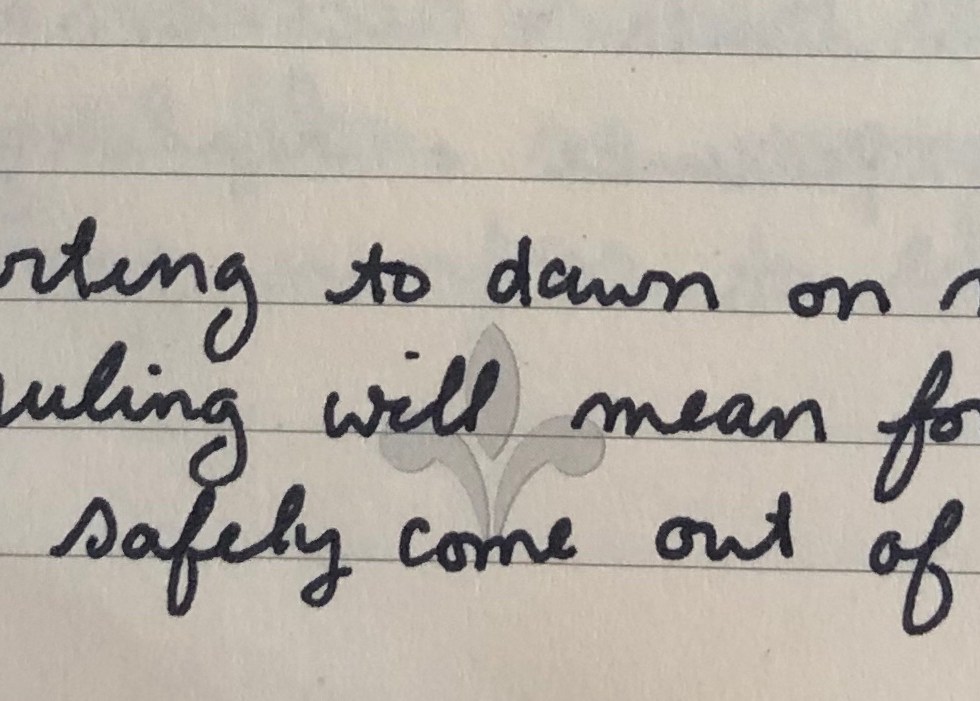 rting to dawn on
ruling will mean fo
safely come out of